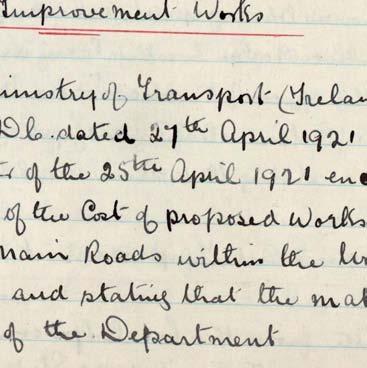 Improvement Works
ministry of Transport (Irelan
Db. dated 27th April 1921
of the 25th April 1921 enc
of the Cost of proposed Works
main Roads within the Ur
and stating that the mat
of the Department